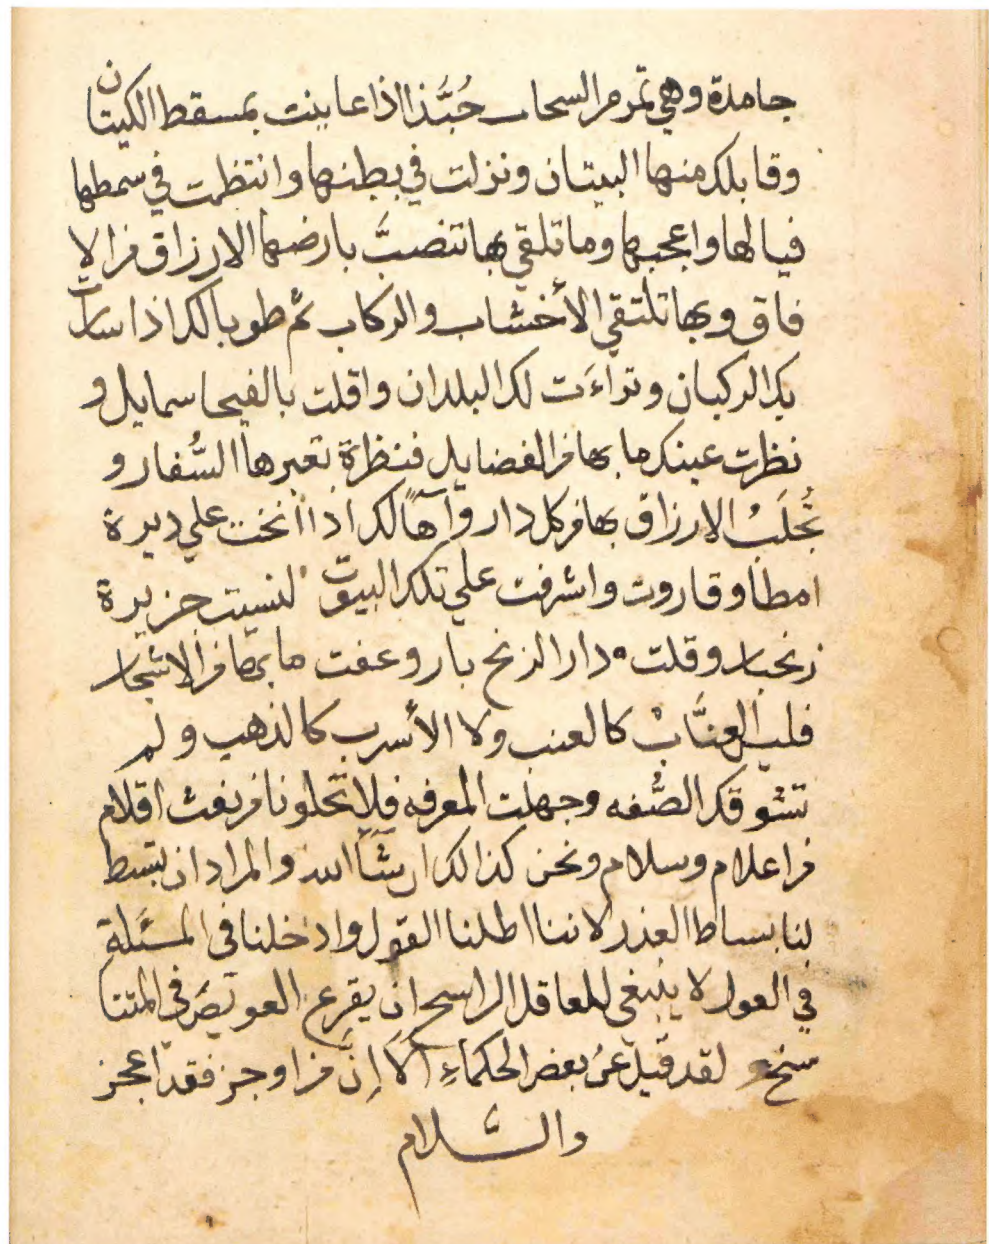 جامدة وهي تمر مر السحاب حُبَّذا اذا عاينت بمسقط الكيتان
وقابلك منها البيتان ونزلت في بطنها وانتظمت في سمطها
فيا لها واعجبها وما تلقي بها تنصبُّ بارضها الارزاق من الا
فاق وبها تلتقي الأخشاب والركاب ثمَّ طوبا لك اذا سارت
بك الركبان وتراءَت لك البلدان واقلت بالفيحا سمايل و
نظرت عينك ما بها من الفضايل فنظرة تعبرها السُّفار و
تُجلَبُ الارزاق بها من كل دار وآهاً لك اذا أنخت علي ديرة
امطا وقاروت واشرفت علي تلك البيوت لنسيت جزيرة
زنجبار وقلت دار الزنج بار وعفت ما بها من الاشجار
فليس العنَّابْ كالعنب ولا الأسرب كالذهب ولم
تشوقك الصُّفه وجهلت المعرفه فلا تخلونا من نفث اقلام
من اعلام وسلام ونحن كذالك ان شآء الله والمراد ان تبسط
لنا بساط العذر لاننا اطلنا القول وادخلنا في المسَئلة
في العول لا ينبغي للعاقل الراسخ ان يقرع العويصَ في المتنا
سخ و لقد قيل عن بعض الحكماءِ ألَا إنَّ من اوجز فقد اعجز
والسَّلام